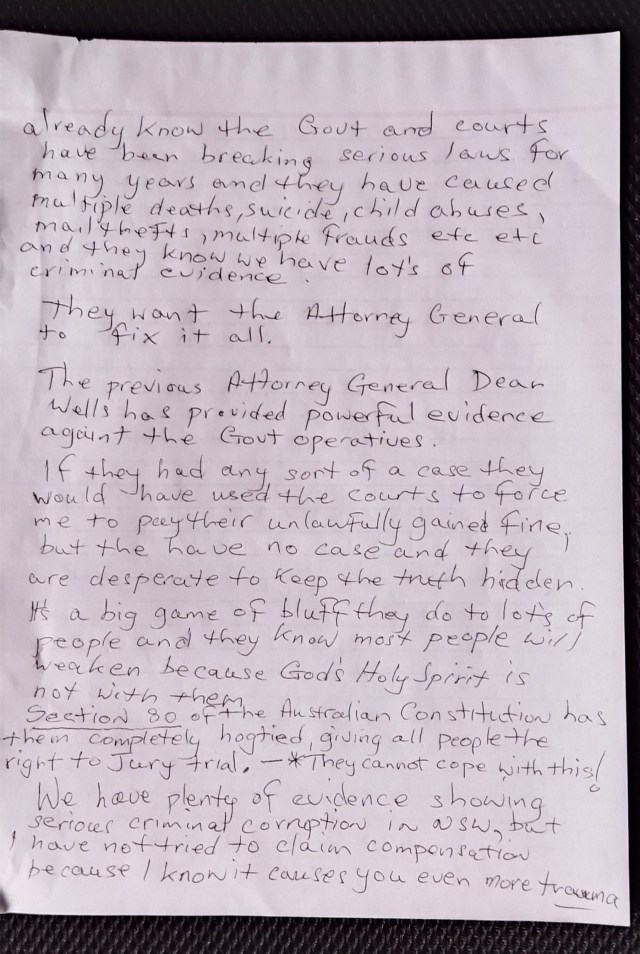 already know the Govt and courts
have been breaking serious laws for
many years and they have caused
multiple deaths, suicide, child abuses,
mail thefts, multiple frauds etc etc
and they know we have lot's of
criminal evidence.
They want the Attorney General
to fix it all.
The previous Attorney General Dean
Wells has provided powerful evidence
againt the Govt operatives.
If they had any sort of a case they
would have used the courts to force
me to pay their unlawfully gained fine,
but the have no case and they
are desperate to keep the truth hidden.
It's a big game of bluff they do to lot's of
people and they know most people will
weaken because God's Holy Spirit is
not with them
Section 80 of the Australian Constitution has
them completely hogtied, giving all people the
right to Jury trial. — *They cannot cope with this!
We have plenty of evidence showing
serious criminal corruption in NSW, but
I have not tried to claim compensation
because I know it causes you even more trauma